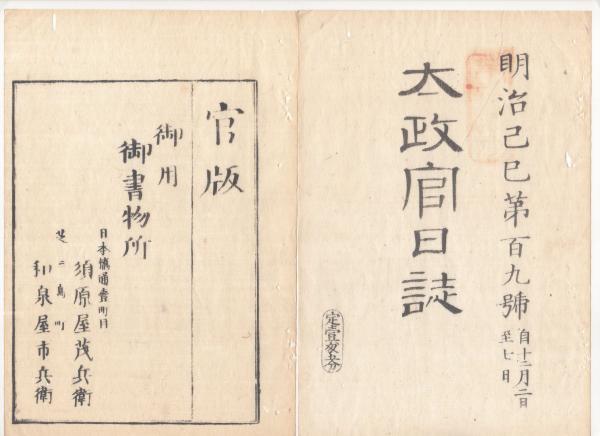 明治己巳第百九號
自十二月二日
至七日
太政官日誌
官版
御用
御書物所
日本橋通壹町目
須原屋茂兵衛
芝二島町
和泉屋市兵衛